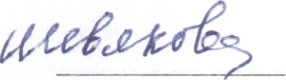 Шевлякова